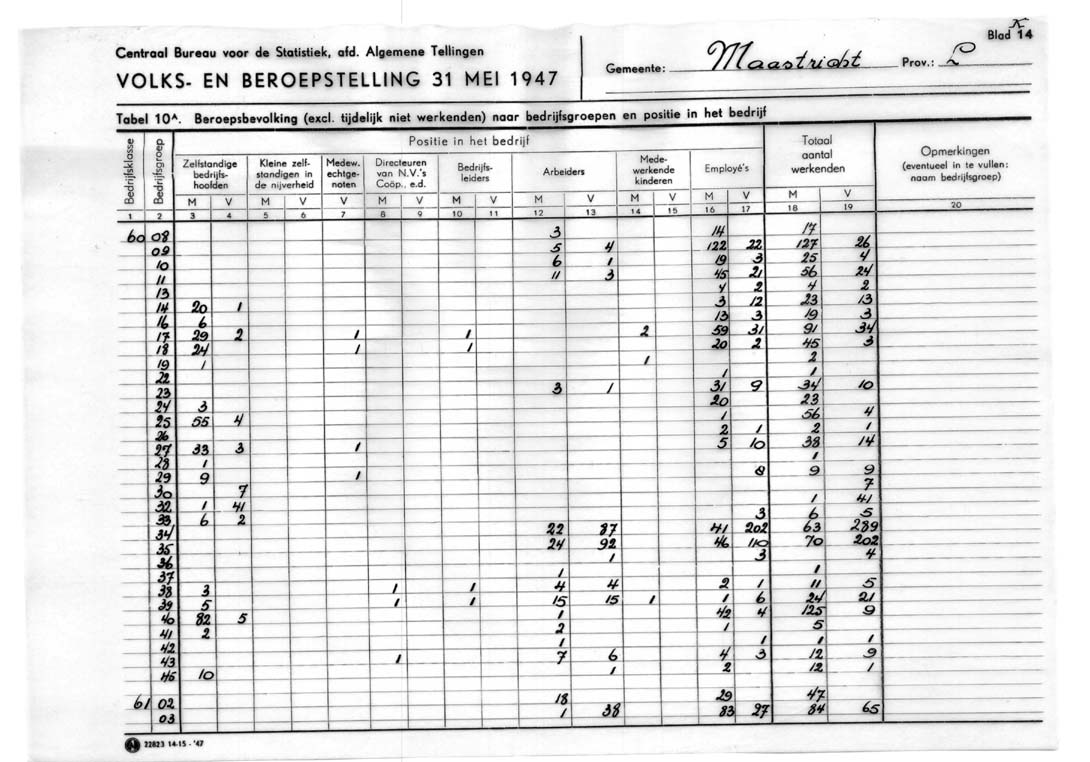 K
Blad 14
Centraal Bureau voor de Statistiek, afd. Algemene Tellingen
VOLKS- EN BEROEPSTELLING 31 MEI 1947
Gemeente: Maastricht Prov.: L
Tabel 10A. Beroepsbevolking (excl. tijdelijk niet werkenden) naar bedrijfsgroepen en positie in het bedrijf
Bedrijfsklasse Bedrijfsgroep Positie in het bedrijf Totaal aantal werkenden Opmerkingen (eventueel in te vullen: naam bedrijfsgroep)
Zelfstandige bedrijfshoofden Kleine zelfstandigen in de nijverheid Medew. echtgenoten Directeuren van N.V.'s Coöp., e.d. Bedrijfsleiders Arbeiders Medewerkende kinderen Employé's
M V M V V M V M V M V M V M V M V
1 2 3 4 5 6 7 8 9 10 11 12 13 14 15 16 17 18 19 20
60 08 3 14 17
09 5 4 122 22 127 26
10 6 1 19 3 25 4
11 11 3 45 21 56 24
13 4 2 4 2
14 20 1 3 12 23 13
16 6 13 3 19 3
17 29 2 1 1 2 59 31 91 34
18 24 1 1 20 2 45 3
19 1 1 2
22 1 1
23 3 1 31 9 34 10
24 3 20 23
25 55 4 1 56 4
26 2 1 2 1
27 33 3 1 5 10 38 14
28 1 1
29 9 1 8 9 9
30 7 7
32 1 41 1 41
33 6 2 3 6 5
34 22 87 41 202 63 289
35 24 92 46 110 70 202
36 1 3 4
37 1 1
38 3 1 1 4 4 2 1 11 5
39 5 1 1 15 15 1 1 6 24 21
40 82 5 1 42 4 125 9
41 2 2 1 5
42 1 1 1 1
43 1 7 6 4 3 12 9
45 10 1 2 12 1
61 02 18 29 47
03 1 38 83 27 84 65
22823 14-15 - '47